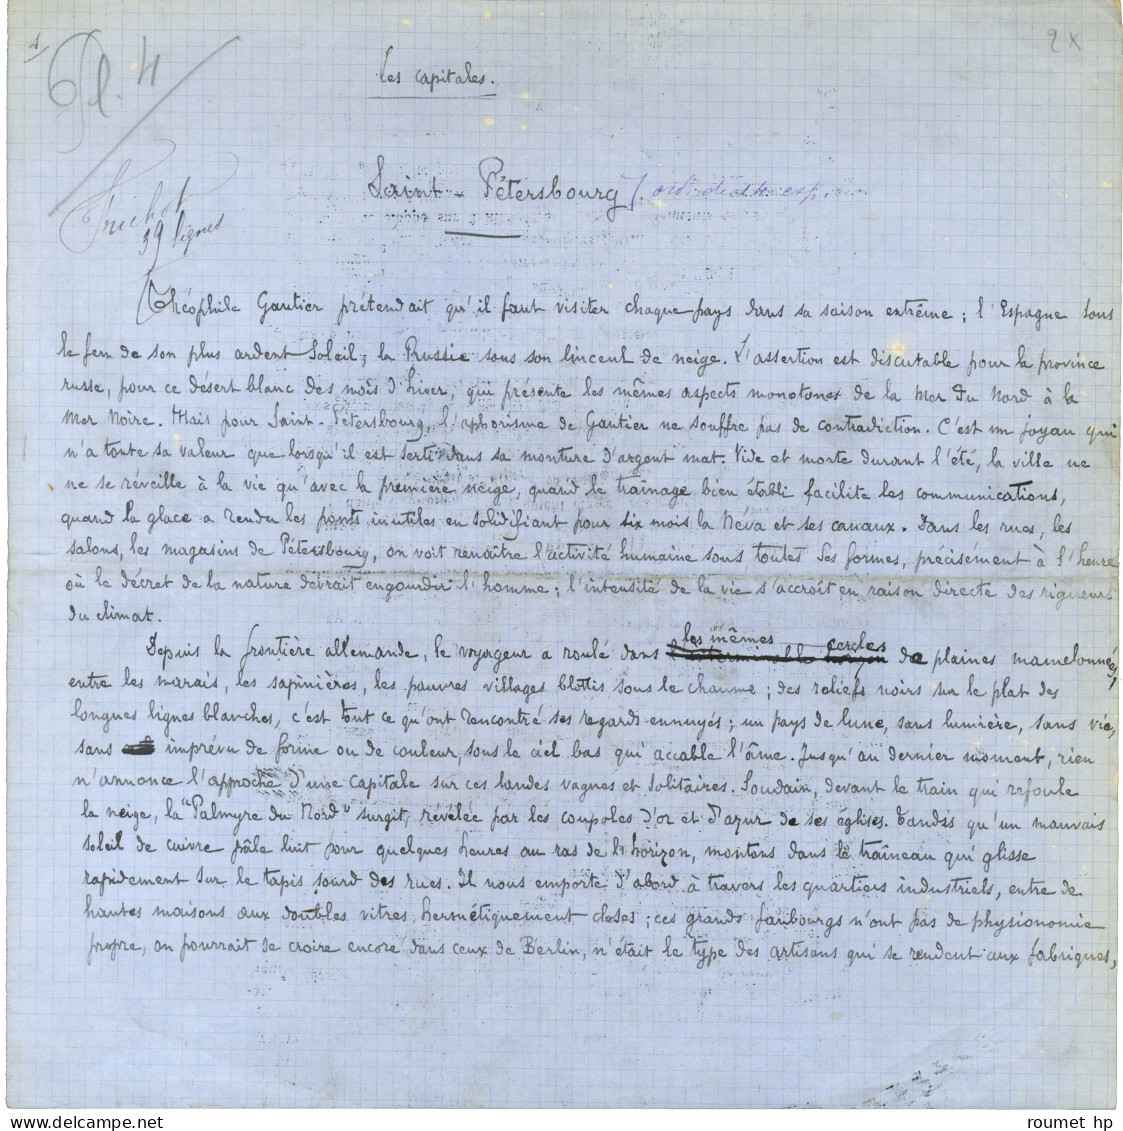 1
Pl. 4
2 x
Les capitales.
Saint-Pétersbourg
39 lignes
Théophile Gautier prétendait qu'il faut visiter chaque pays dans sa saison extrême ; l'Espagne sous
le feu de son plus ardent Soleil, la Russie sous son linceul de neige. L'assertion est discutable pour la province
russe, pour ce désert blanc des mois d'hiver, qui présente les mêmes aspects monotones de la Mer du Nord à la
Mer Noire. Mais pour Saint-Pétersbourg, l'aphorisme de Gautier ne souffre pas de contradiction. C'est un joyau qui
n'a toute sa valeur que lorsqu'il est serti dans sa monture d'argent mat. Vide et morte durant l'été, la ville ne
ne se réveille à la vie qu'avec la première neige, quand le traînage bien établi facilite les communications,
quand la glace a rendu les ponts inutiles en solidifiant pour six mois la Néva et ses canaux. Dans les rues, les
salons, les magasins de Pétersbourg, on voit renaître l'activité humaine sous toutes ses formes, précisément à l'heure
où le décret de la nature devrait engourdir l'homme ; l'intensité de la vie s'accroît en raison directe des rigueurs
du climat.
Depuis la frontière allemande, le voyageur a roulé dans les mêmes cercles de plaines mamelonnées,
entre les marais, les sapinières, les pauvres villages blottis sous le chaume ; des reliefs noirs sur le plat des
longues lignes blanches, c'est tout ce qu'ont rencontré ses regards ennuyés ; un pays de lune, sans lumière, sans vie,
sans imprévu de forme ou de couleur, sous le ciel bas qui accable l'âme. Jusqu'au dernier moment, rien
n'annonce l'approche d'une capitale sur ces landes vagues et solitaires. Soudain, devant le train qui refoule
la neige, la "Palmyre du Nord" surgit, révélée par les coupoles d'or et d'azur de ses églises. Tandis qu'un mauvais
soleil de cuivre pâle luit pour quelques heures au ras de l'horizon, montons dans le traîneau qui glisse
rapidement sur le tapis sourd des rues. Il nous emporte d'abord à travers les quartiers industriels, entre de
hautes maisons aux doubles vitres hermétiquement closes ; ces grands faubourgs n'ont pas de physionomie
propre, on pourrait se croire encore dans ceux de Berlin, n'était le type des artisans qui se rendent aux fabriques,
roumet hp
www.delcampe.net